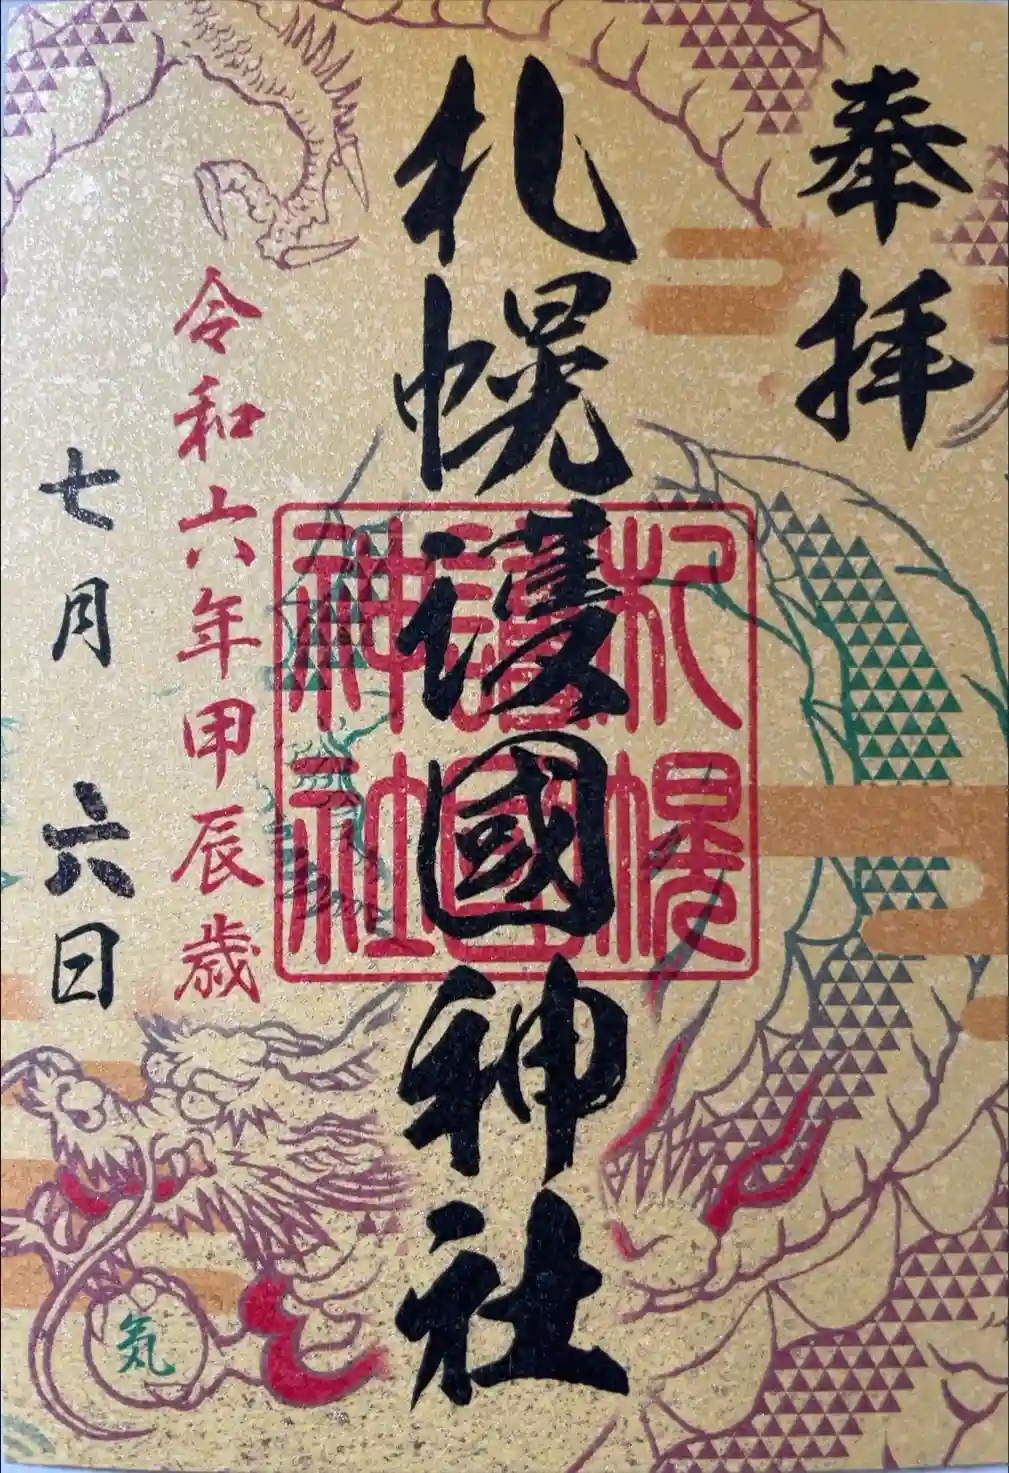 奉拝
札幌護國神社
札幌
護國
神社
令和六年甲辰歳
七月六日
気